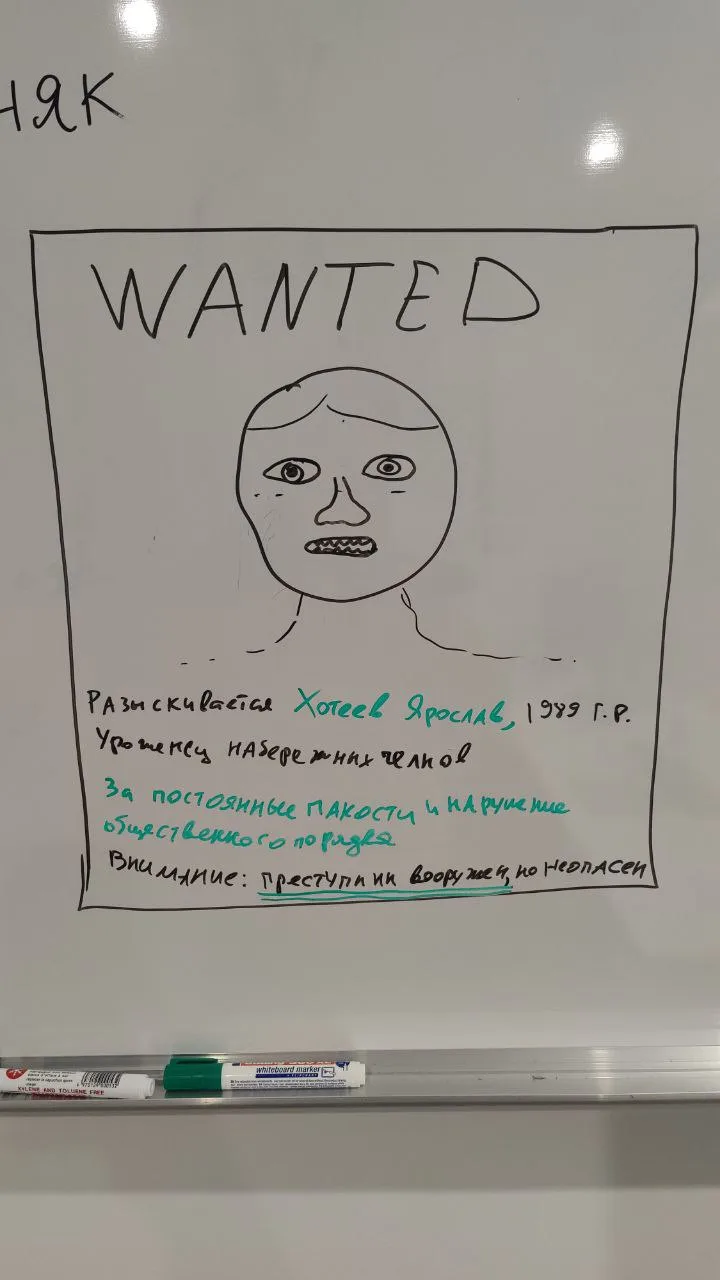 няк
WANTED
Разыскивается Хотеев Ярослав, 1989 г.р.
Уроженец набережних челнов
За постоянные пакости и нарушение
общественного порядка
Внимание: преступник вооружен, но неопасен
XYLENE AND TOLUENE FREE
whiteboard marker